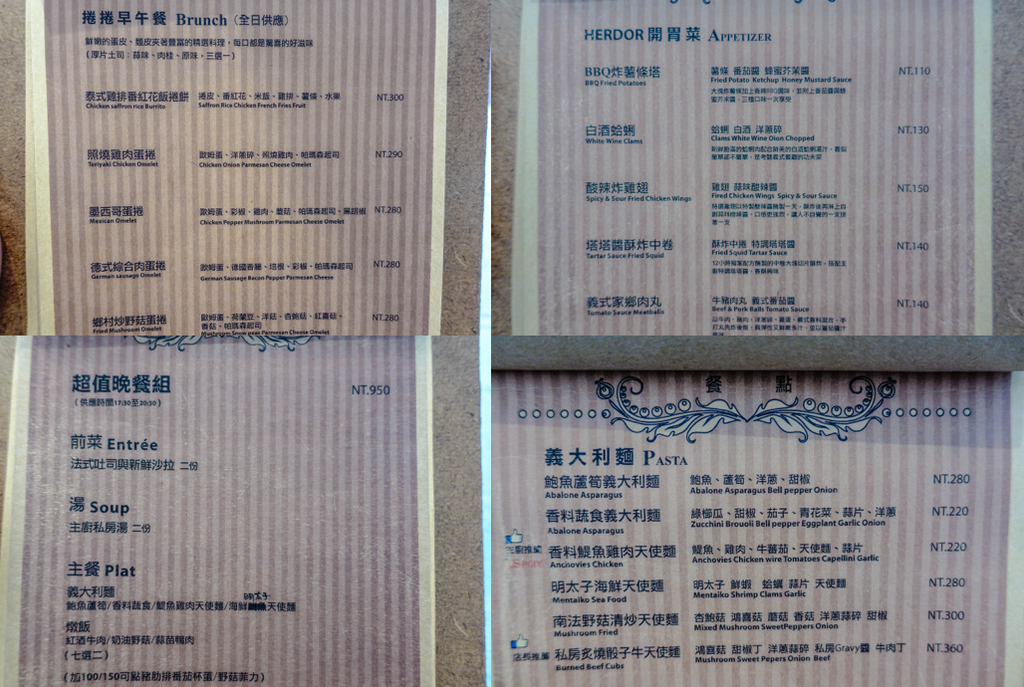 捲捲早午餐 Brunch（全日供應）
鮮嫩的蛋皮、麵皮夾著豐富的精選料理，每口都是驚喜的好滋味
（厚片土司：蒜味、肉桂、原味，三選一）
泰式雞排番紅花飯捲餅 捲皮、番紅花、米飯、雞排、薯條、水果 NT.300
Chicken saffron rice Burrito Saffron Rice Chicken French Fries Fruit
照燒雞肉蛋捲 歐姆蛋、洋蔥碎、照燒雞肉、帕瑪森起司 NT.290
Teriyaki Chicken Omelet Chicken Onion Parmesan Cheese Omelet
墨西哥蛋捲 歐姆蛋、彩椒、雞肉、蘑菇、帕瑪森起司、黑胡椒 NT.280
Mexican Omelet Chicken Pepper Mushroom Parmesan Cheese Omelet
德式綜合肉蛋捲 歐姆蛋、德國香腸、培根、彩椒、帕瑪森起司 NT.280
German sausage Omelet German Sausage Bacon Pepper Parmesan Cheese
鄉村炒野菇蛋捲 歐姆蛋、荷蘭豆、洋菇、杏鮑菇、紅喜菇、 NT.280
香菇、帕瑪森起司
Fried Mushroom Omelet Mushroom Snow pear Parmesan Cheese Omelet
HERDOR 開胃菜 APPETIZER
BBQ炸薯條塔 薯條 番茄醬 蜂蜜芥茉醬 NT.110
BBQ Fried Potatoes Fried Potato Ketchup Honey Mustard Sauce
白酒蛤蜊 蛤蜊 白酒 洋蔥碎 NT.130
White Wine Clams Clams White Wine Oion Chopped
酸辣炸雞翅 雞翅 蒜味酸辣醬 NT.150
Spicy & Sour Fried Chicken Wings Fired Chicken Wings Spicy & Sour Sauce
塔塔醬酥炸中卷 酥炸中捲 特調塔塔醬 NT.140
Tartar Sauce Fried Squid Fried Squid Tartar Sauce
義式家鄉肉丸 牛豬肉丸 義式番茄醬 NT.140
Tomato Sauce Meatballs Beef & Pork Balls Tomato Sauce
超值晚餐組 NT.950
（供應時間17:30至20:30）
前菜 Entrée
法式吐司與新鮮沙拉 二份
湯 Soup
主廚私房湯 二份
主餐 Plat
義大利麵
明太子
鮑魚蘆筍/香料蔬食/鯷魚雞肉天使麵/海鮮天使麵
燉飯
紅酒牛肉/奶油野菇/蒜苗鴨肉
（七選二）
（加100/150可點豬肋排番茄杯蛋/野菇菲力）
餐 點
義大利麵 PASTA
鮑魚蘆筍義大利麵 鮑魚、蘆筍、洋蔥、甜椒 NT.280
Abalone Asparagus Abalone Asparagus Bell pepper Onion
香料蔬食義大利麵 綠櫛瓜、甜椒、茄子、青花菜、蒜片、洋蔥 NT.220
Abalone Asparagus Zucchini Brouoli Bell pepper Eggplant Garlic Onion
主廚推薦 香料鯷魚雞肉天使麵 鯷魚、雞肉、牛蕃茄、天使麵、蒜片 NT.220
SPICY Anchovies Chicken Anchovies Chicken wire Tomatoes Capellini Garlic
明太子海鮮天使麵 明太子 鮮蝦 蛤蠣 蒜片 天使麵 NT.280
Mentaiko Sea Food Mentaiko Shrimp Clams Garlic
南法野菇清炒天使麵 杏鮑菇 鴻喜菇 蘑菇 香菇 洋蔥蒜碎 甜椒 NT.300
Mushroom Fried Mixed Mushroom SweetPeppers Onion
店長推薦 私房炙燒骰子牛天使麵 鴻喜菇 甜椒丁 洋蔥蒜碎 私房Gravy醬 牛肉丁 NT.360
Burned Beef Cubs Mushroom Sweet Pepers Onion Beef